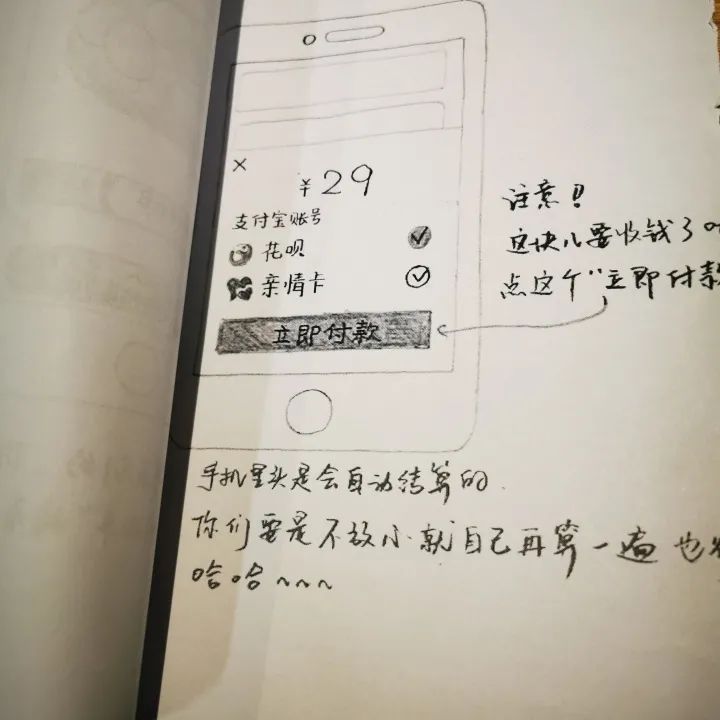 ×
¥ 29
支付宝账号
花呗
亲情卡
立即付款
注意!!
这块儿要收钱了
点这个"立即付款
手机里头是会自动结算的.
你们要是不放心就自己再算一遍也
哈哈~~~